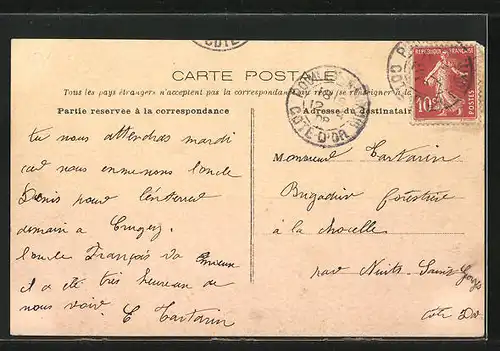 CARTE POSTALE
Tous les pays étrangers n'acceptent pas la correspondance au recto se renseigner à la
Partie reservee à la correspondance
Adresse du destinataire
RÉPUBLIQUE FRANÇAISE
10c
POSTES
COTE
COTE D'OR
tu nous attendras mardi
car nous emmenons l'oncle
Denis pour l'enterrer
demain a
l'oncle François va mieux
il a été très heureux de
nous voir. C Tartarin
Monsieur Tartarin
Brigadier forestier
à la
par Nuits Saint Georges
Côte Dor